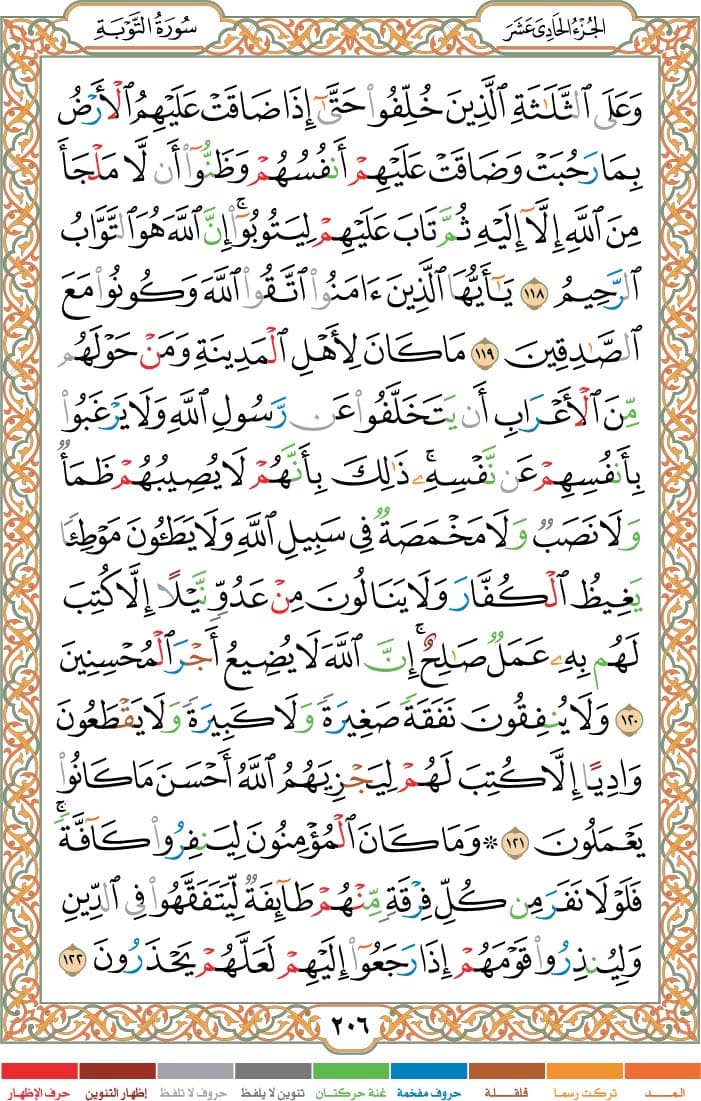 الجزء الحادي عشر
سورة التوبة
وَعَلَى ٱلثَّلَـٰثَةِ ٱلَّذِينَ خُلِّفُوا۟ حَتَّىٰٓ إِذَا ضَاقَتْ عَلَيْهِمُ ٱلْأَرْضُ
بِمَا رَحُبَتْ وَضَاقَتْ عَلَيْهِمْ أَنفُسُهُمْ وَظَنُّوٓا۟ أَن لَّا مَلْجَأَ
مِنَ ٱللَّهِ إِلَّآ إِلَيْهِ ثُمَّ تَابَ عَلَيْهِمْ لِيَتُوبُوٓا۟ ۚ إِنَّ ٱللَّهَ هُوَ ٱلتَّوَّابُ
ٱلرَّحِيمُ ١١٨ يَـٰٓأَيُّهَا ٱلَّذِينَ ءَامَنُوا۟ ٱتَّقُوا۟ ٱللَّهَ وَكُونُوا۟ مَعَ
ٱلصَّـٰدِقِينَ ١١٩ مَا كَانَ لِأَهْلِ ٱلْمَدِينَةِ وَمَنْ حَوْلَهُم
مِّنَ ٱلْأَعْرَابِ أَن يَتَخَلَّفُوا۟ عَن رَّسُولِ ٱللَّهِ وَلَا يَرْغَبُوا۟
بِأَنفُسِهِمْ عَن نَّفْسِهِۦ ۚ ذَٰلِكَ بِأَنَّهُمْ لَا يُصِيبُهُمْ ظَمَأٌ
وَلَا نَصَبٌ وَلَا مَخْمَصَةٌ فِى سَبِيلِ ٱللَّهِ وَلَا يَطَـُٔونَ مَوْطِئًا
يَغِيظُ ٱلْكُفَّارَ وَلَا يَنَالُونَ مِنْ عَدُوٍّ نَّيْلًا إِلَّا كُتِبَ
لَهُم بِهِۦ عَمَلٌ صَـٰلِحٌ ۚ إِنَّ ٱللَّهَ لَا يُضِيعُ أَجْرَ ٱلْمُحْسِنِينَ
١٢٠ وَلَا يُنفِقُونَ نَفَقَةً صَغِيرَةً وَلَا كَبِيرَةً وَلَا يَقْطَعُونَ
وَادِيًا إِلَّا كُتِبَ لَهُمْ لِيَجْزِيَهُمُ ٱللَّهُ أَحْسَنَ مَا كَانُوا۟
يَعْمَلُونَ ١٢١ ۞ وَمَا كَانَ ٱلْمُؤْمِنُونَ لِيَنفِرُوا۟ كَآفَّةً ۚ
فَلَوْلَا نَفَرَ مِن كُلِّ فِرْقَةٍ مِّنْهُمْ طَآئِفَةٌ لِّيَتَفَقَّهُوا۟ فِى ٱلدِّينِ
وَلِيُنذِرُوا۟ قَوْمَهُمْ إِذَا رَجَعُوٓا۟ إِلَيْهِمْ لَعَلَّهُمْ يَحْذَرُونَ ١٢٢
٢٠٦
المـــد تركت رسما قلقــلة حروف مفخمة غنة حركتان تنوين لا يلفظ حروف لا تلفظ إظهار التنوين حرف الإظهار